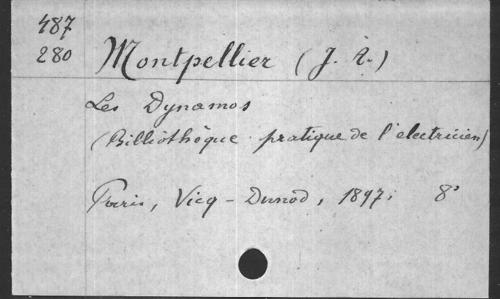 487
280
Montpellier (J. A.)
Les Dynamos
(Bibliothèque pratique de l'électricien)
Paris, Vicq-Dunod, 1897. 8°